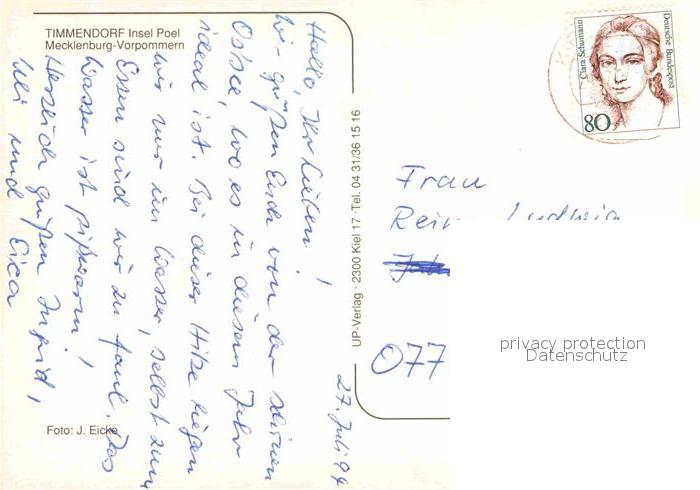 TIMMENDORF Insel Poel
Mecklenburg-Vorpommern
27. Juli 94
Hallo, Ihr Lieben!
Wir grüßen Euch von der schönen
Ostsee, wo es in diesem Jahr
ideal ist. Bei dieser Hitze liegen
wir nur im Wasser, selbst zum
Essen sind wir zu faul. Das
Wasser ist pipiwarm!
Herzlich grüßen Ingrid,
Uli und Erca
Foto: J. Eicke
UP-Verlag · 2300 Kiel 17 · Tel. 04 31/36 15 16
Clara Schumann
Deutsche Bundespost
80
Frau
Ludwig
077
privacy protection
Datenschutz